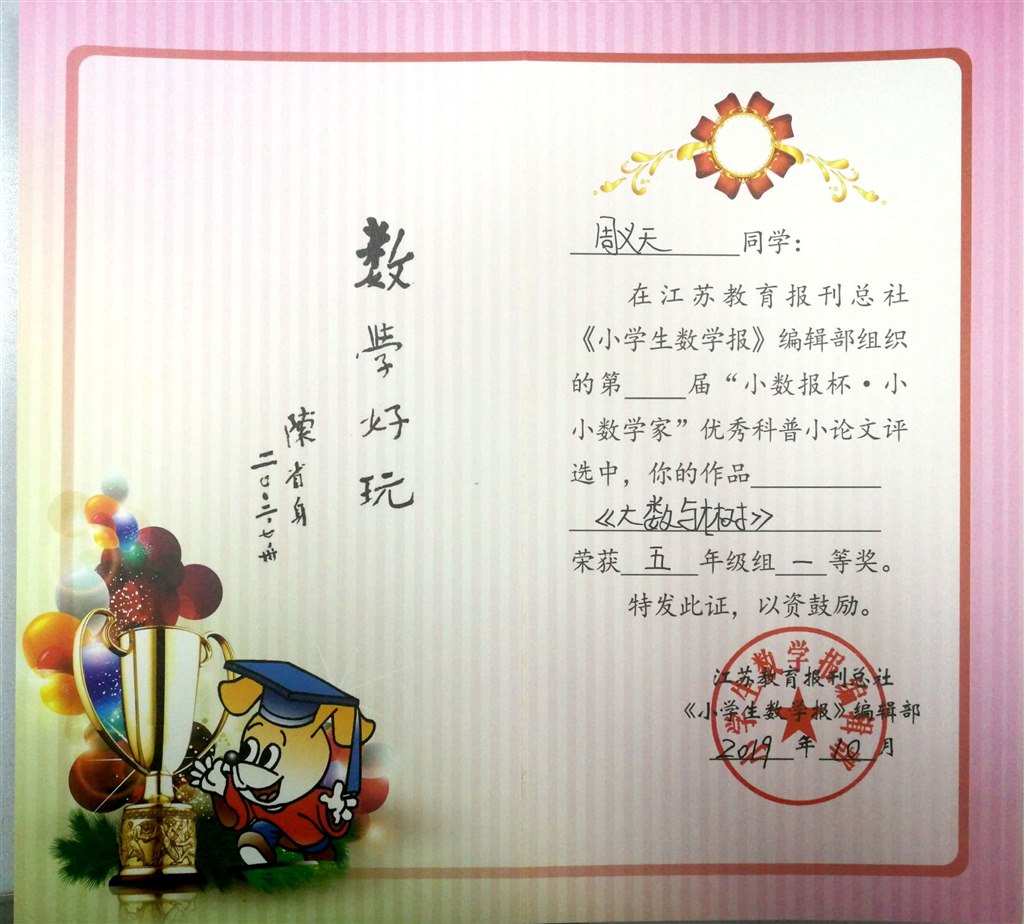 数学好玩
陳省身
周义天 同学：
在江苏教育报刊总社
《小学生数学报》编辑部组织
的第____届“小数报杯·小
小数学家”优秀科普小论文评
选中，你的作品
《大数与大树》
荣获 五 年级组 一 等奖。
特发此证，以资鼓励。
小学生数学报编辑部
江苏教育报刊总社
《小学生数学报》编辑部
2019 年 10 月